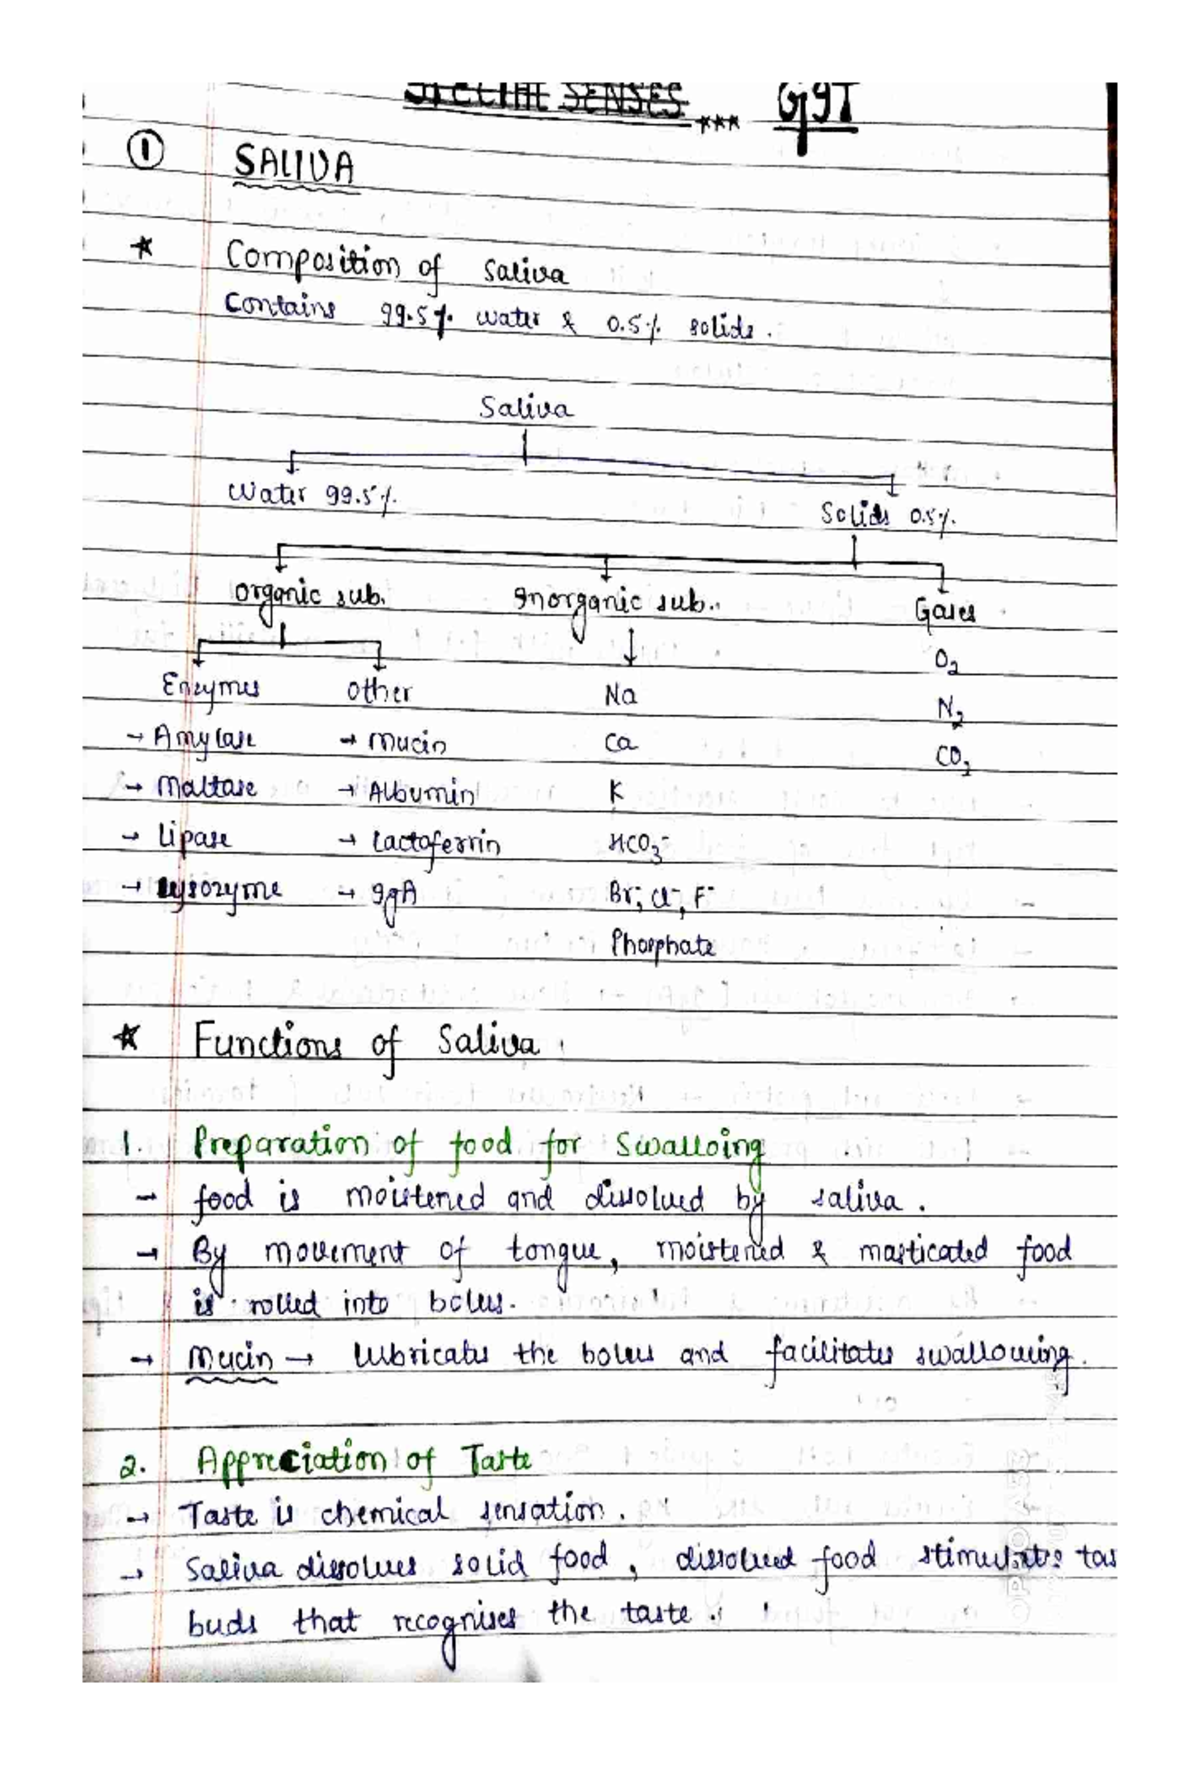 SPECIAL SENSES *** GIT
① SALIVA
* Composition of Saliva
Contains 99.5% water & 0.5% solids.
Saliva
Water 99.5%
Solids 0.5%.
organic sub. Inorganic sub.. Gases
O₂
Enzymes other Na N₂
→ Amylase → mucin Ca CO₂
→ Maltase → Albumin K
→ Lipase → Lactoferrin HCO₃⁻
→ Lysozyme → IgA Br⁻, Cl⁻, F⁻
Phosphate
* Functions of Saliva
1. Preparation of food for Swalloing
→ food is moistened and dissolved by saliva.
→ By movement of tongue, moistened & masticated food
is rolled into bolus.
→ Mucin → lubricates the bolus and facilitates swallowing.
2. Appreciation of Taste
→ Taste is chemical sensation.
→ Saliva dissolves solid food, dissolved food stimulates tas
buds that recognises the taste.